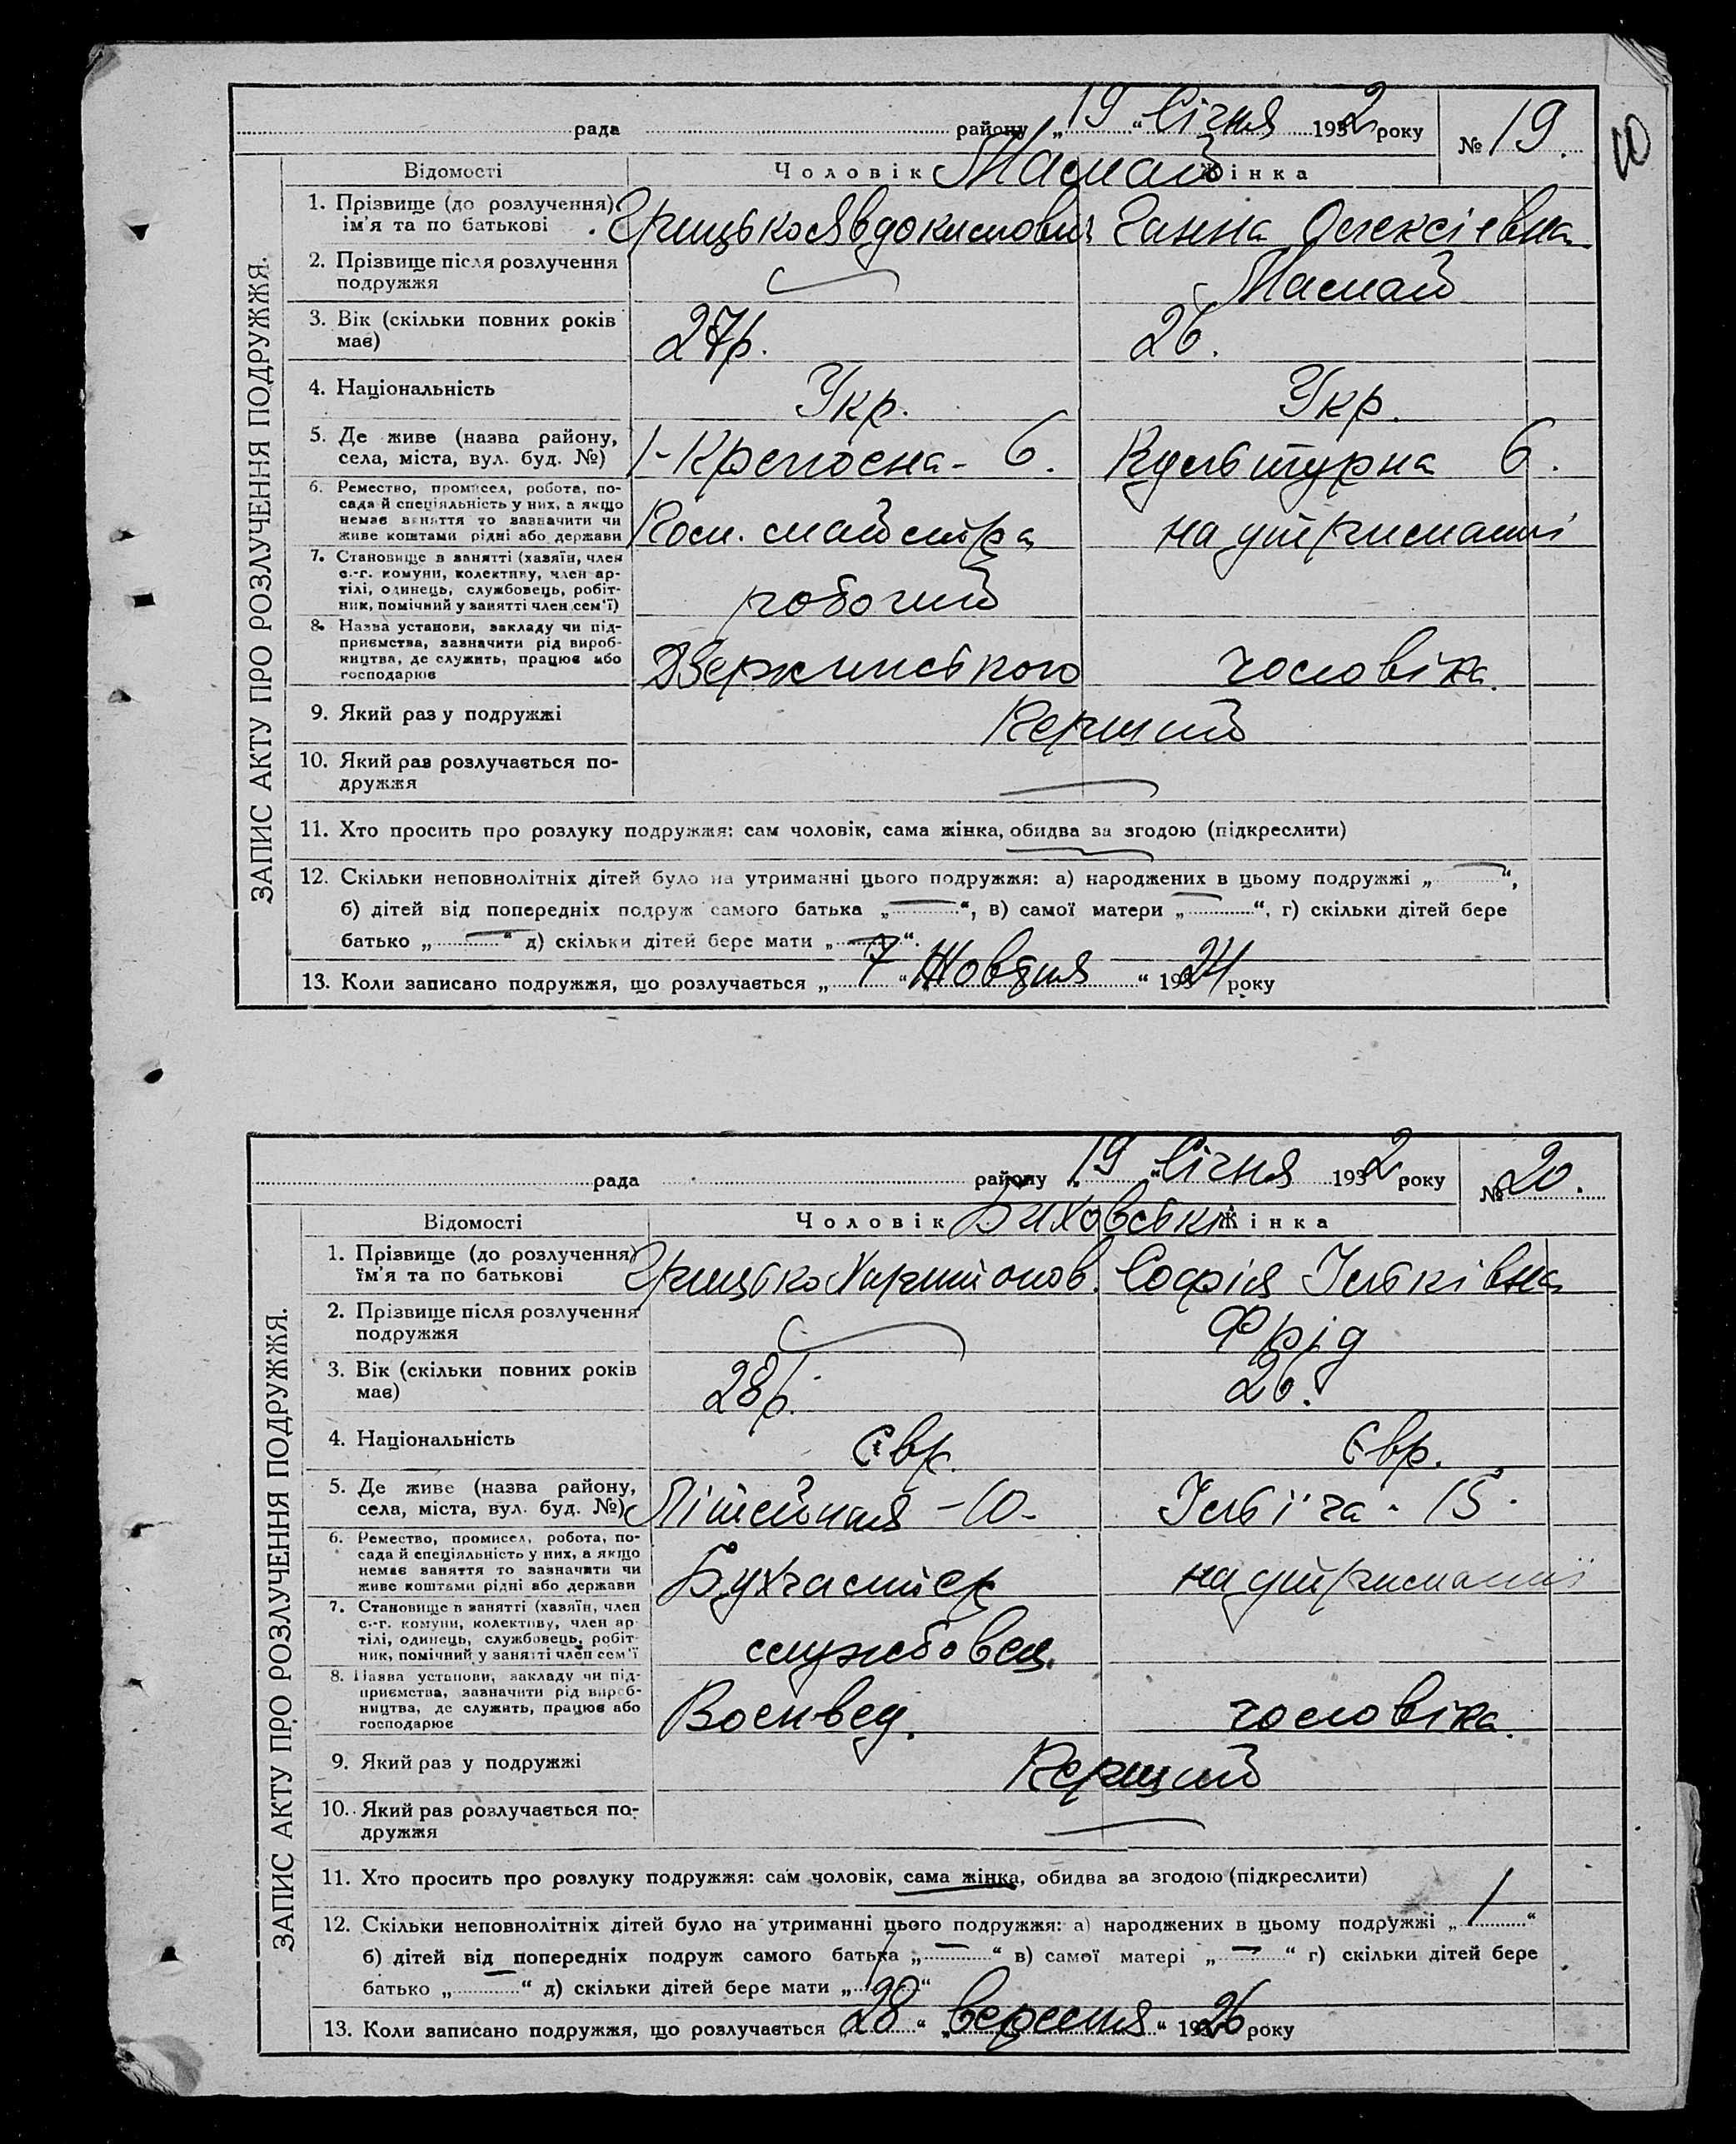 рада районУ „19“ Січня 1932 року № 19.
10
ЗАПИС АКТУ ПРО РОЗЛУЧЕННЯ ПОДРУЖЖЯ.
Відомості Чоловік Жінка
1. Прізвище (до розлучення), ім'я та по батькові
Грицько Явдокимович Ганна Олексієвна
2. Прізвище після розлучення подружжя
3. Вік (скільки повних років має) 27 р. 26.
4. Національність Укр. Укр.
5. Де живе (назва району, села, міста, вул. буд. №) 6. Культурна 6.
6. Ремество, промисел, робота, посада й спеціяльність у них, а якщо немає заняття то зазначити чи живе коштами рідні або держави
Пом. майстра на утриманні
7. Становище в занятті (хазяїн, член с.-г. комуни, колективу, член артілі, одинець, службовець, робітник, помічний у занятті член сем'ї)
робочий
8. Назва установи, закладу чи підприємства, зазначити рід виробництва, де служить, працює або господарює
Дзержинського чоловіка.
9. Який раз у подружжі Перший
10. Який раз розлучається подружжя
11. Хто просить про розлуку подружжя: сам чоловік, сама жінка, обидва за згодою (підкреслити)
12. Скільки неповнолітніх дітей було на утриманні цього подружжя: а) народжених в цьому подружжі „—“,
б) дітей від попередніх подруж самого батька „—“, в) самої матери „—“, г) скільки дітей бере
батько „—“ д) скільки дітей бере мати „—“.
13. Коли записано подружжя, що розлучається „7“ „Жовтня“ 1924 року
рада району „19“ Січня 1932 року № 20.
ЗАПИС АКТУ ПРО РОЗЛУЧЕННЯ ПОДРУЖЖЯ.
Відомості Чоловік Биховські Жінка
1. Прізвище (до розлучення) їм'я та по батькові
Грицько Харитонов. Софія Ільківна
2. Прізвище після розлучення подружжя Фрід
3. Вік (скільки повних років має) 28 р. 26.
4. Національність Євр. Євр.
5. Де живе (назва району, села, міста, вул. буд. №) Літейная – 10 - Ілліча - 15.
6. Ремество, промисел, робота, посада й спеціяльність у них, а якщо немає заняття то зазначити чи живе коштами рідні або держави
Бухгалтер на утриманні
7. Становище в занятті (хазяїн, член с.-г. комуни, колективу, член артілі, одинець, службовець, робітник, помічний у занятті член сем'ї
службовец.
8. Назва установи, закладу чи підприємства, зазначити рід виробництва, де служить, працює або господарює
Военвед. чоловіка.
9. Який раз у подружжі Перший
10. Який раз розлучається подружжя
11. Хто просить про розлуку подружжя: сам чоловік, сама жінка, обидва за згодою (підкреслити)
12. Скільки неповнолітніх дітей було на утриманні цього подружжя: а) народжених в цьому подружжі „1“
б) дітей від попередніх подруж самого батька „—“ в) самої матері „—“ г) скільки дітей бере
батько „—“ д) скільки дітей бере мати „1“
13. Коли записано подружжя, що розлучається „28“ „вересня“ 1926 року